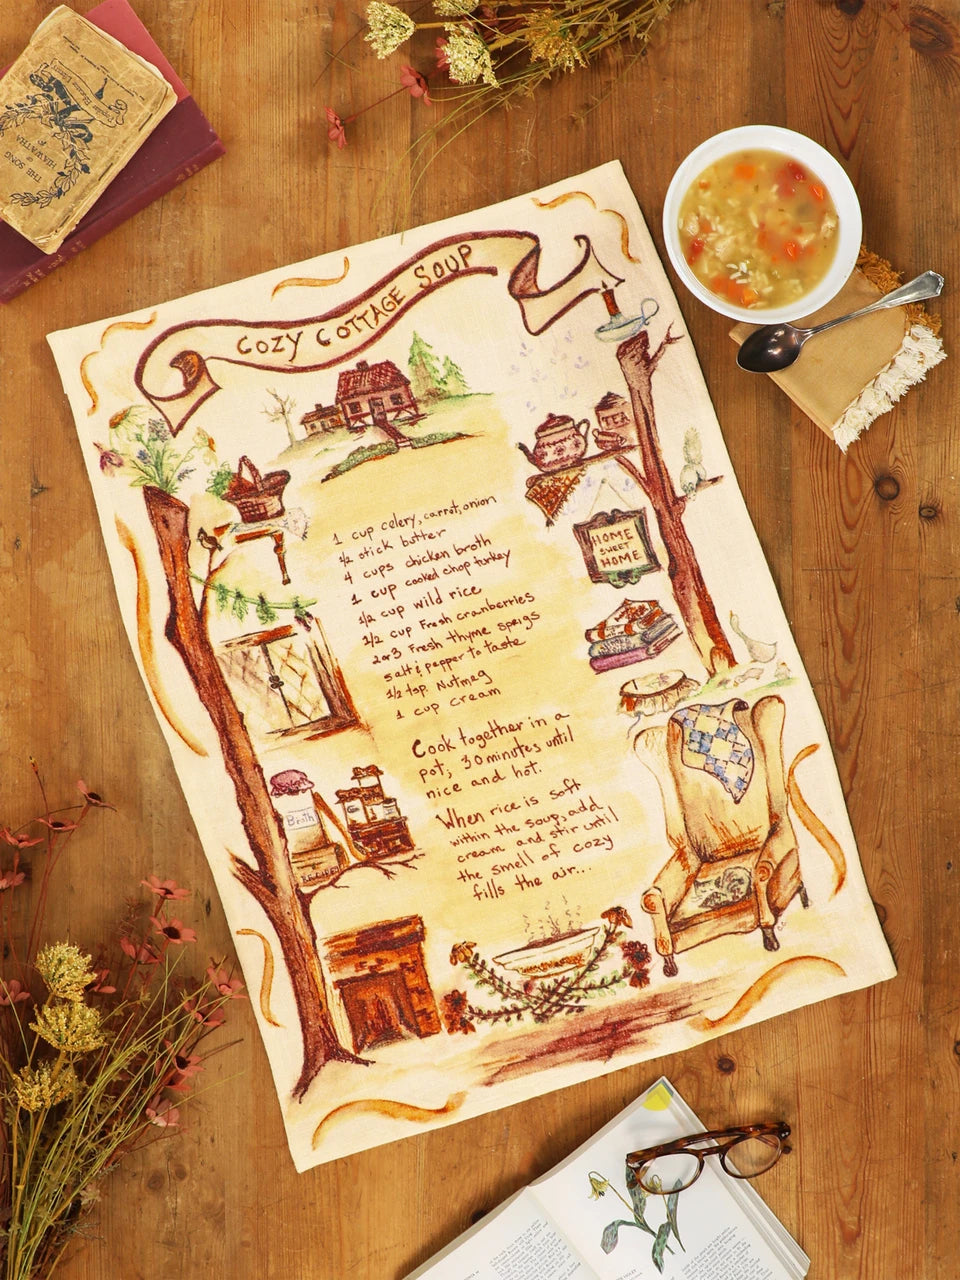 THE SONG
OF
HIAWATHA
COZY COTTAGE SOUP
TEA
HOME
SWEET
HOME
1 cup celery, carrot, onion
1/2 stick butter
4 cups chicken broth
1 cup cooked chop turkey
1/2 cup wild rice
1/2 cup Fresh cranberries
2 or 3 Fresh thyme sprigs
salt & pepper to taste
1/2 tsp. Nutmeg
1 cup cream
Cook together in a
pot, 30 minutes until
nice and hot.
When rice is soft
within the soup, add
cream and stir until
the smell of cozy
fills the air...
Broth